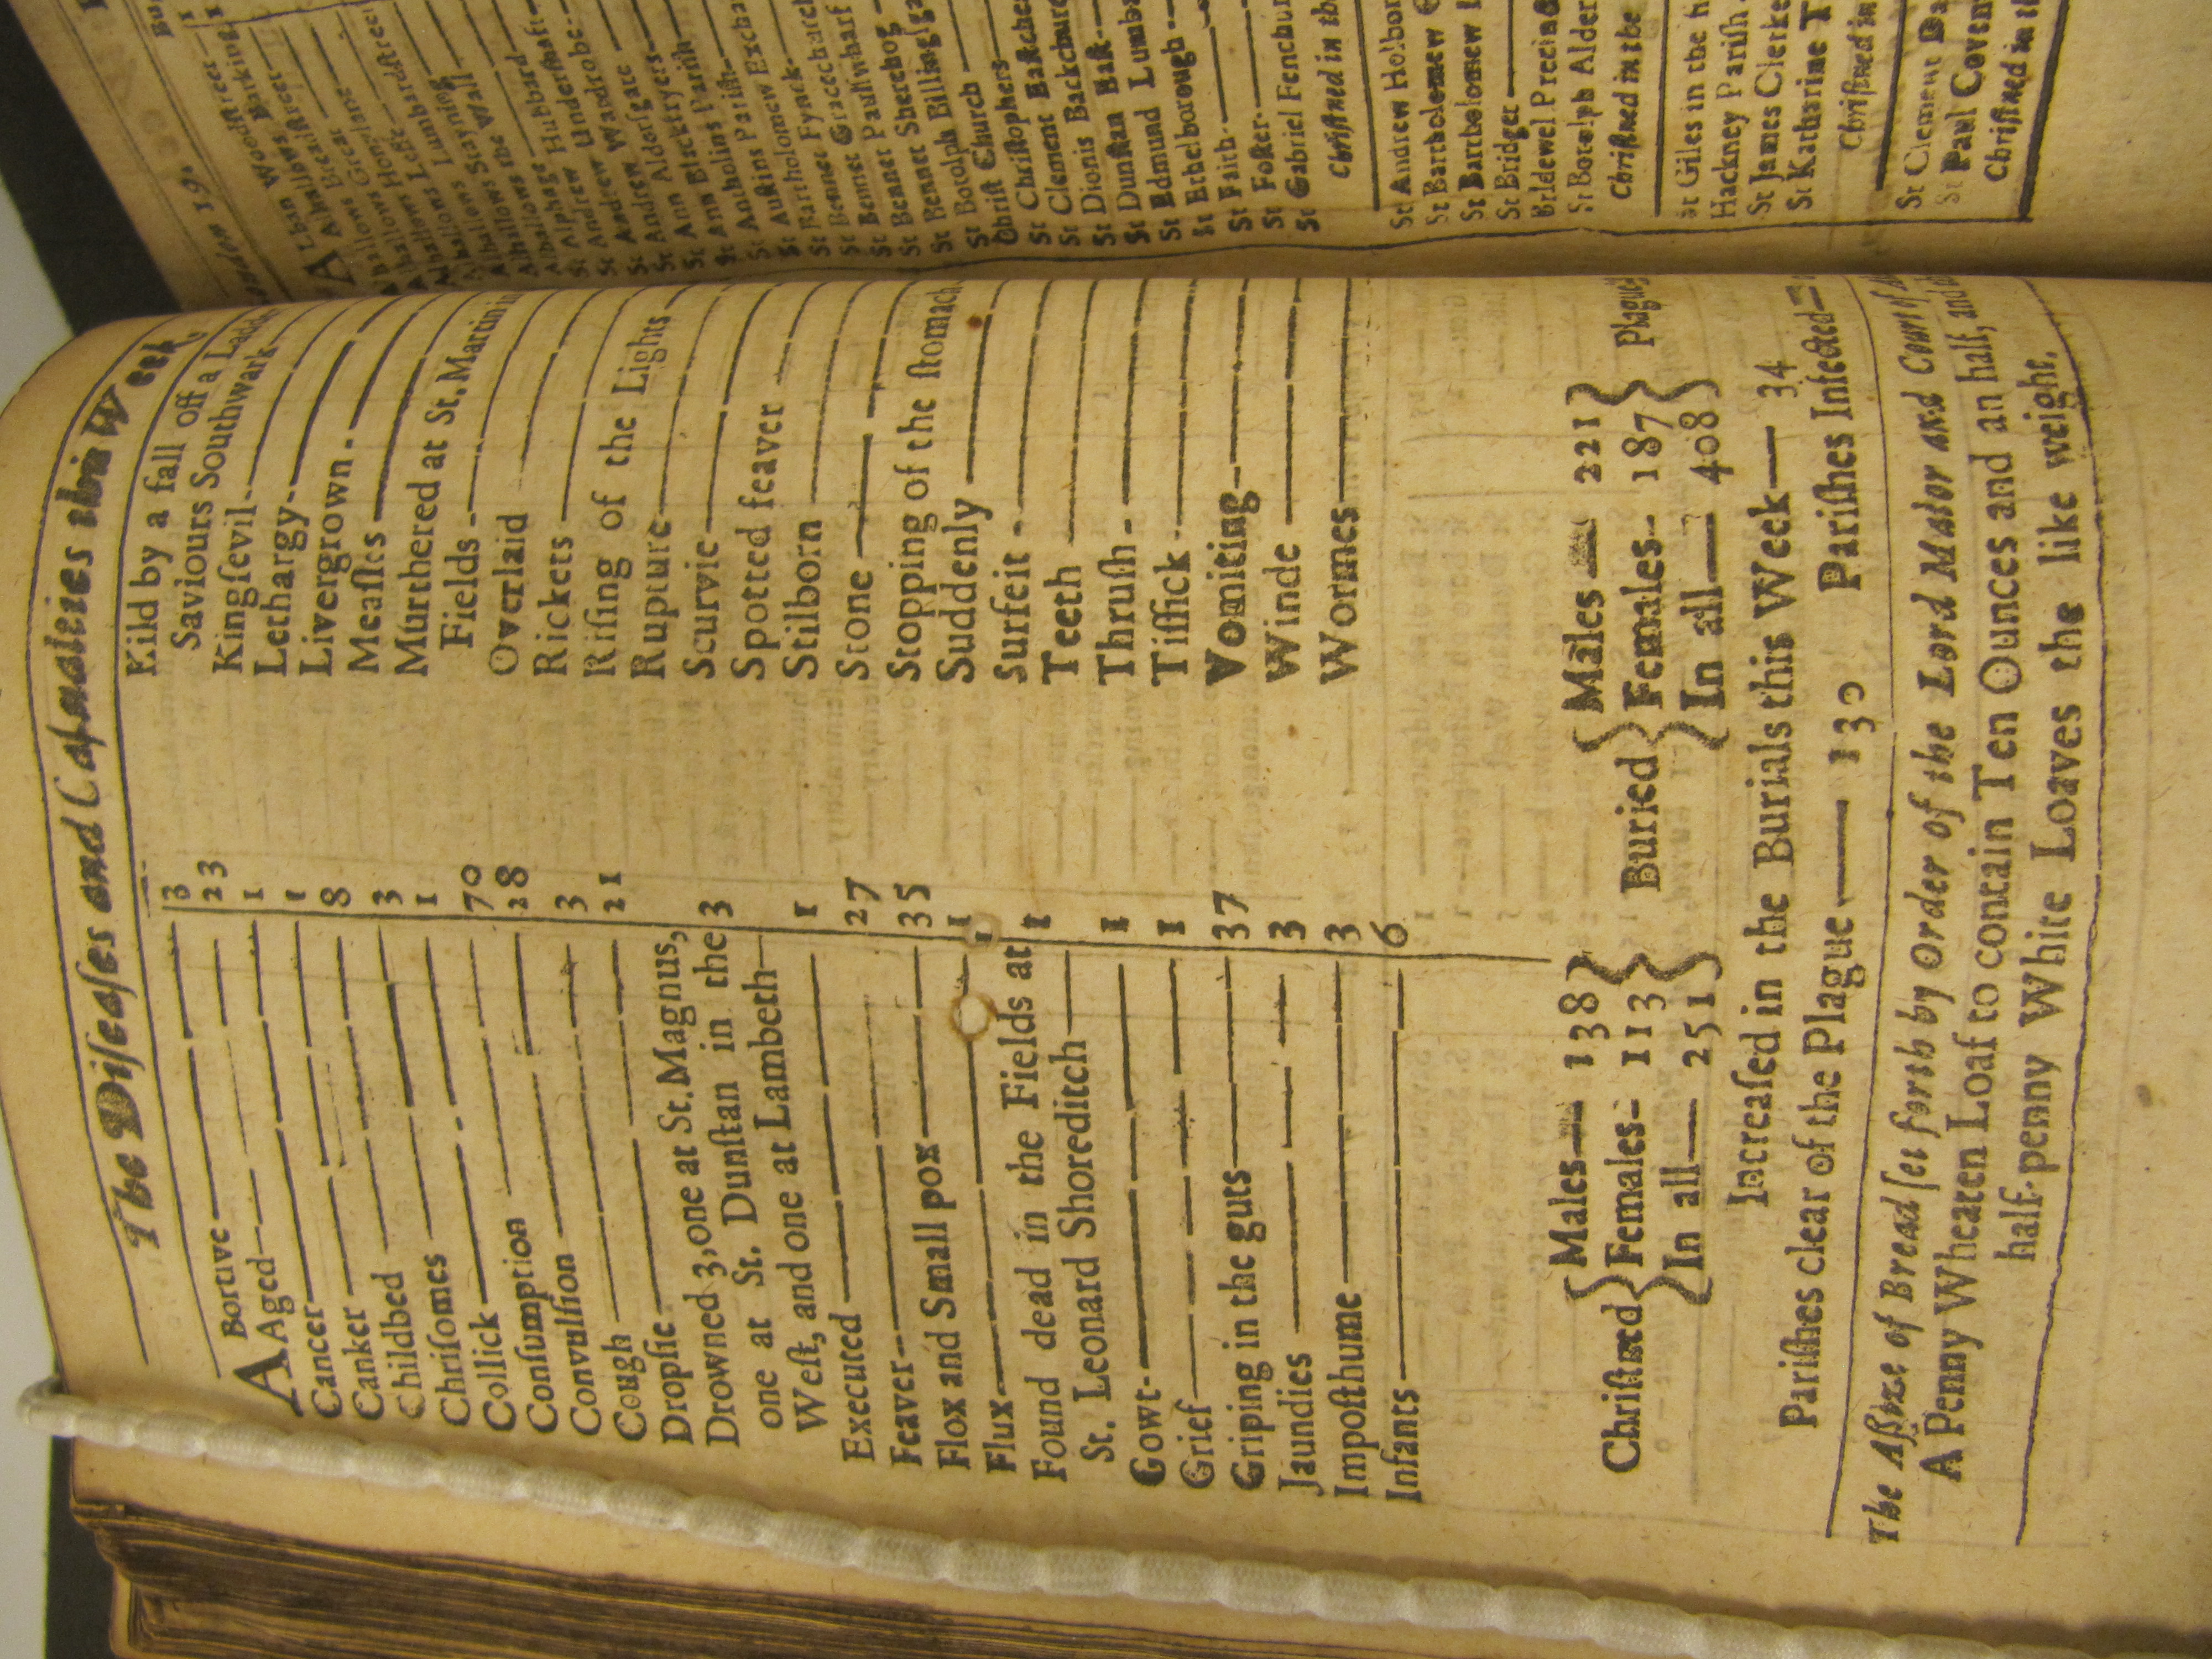 The Diſeaſes and Caſualties this Week
ABortive 3
Aged 23
Cancer 1
Canker 1
Childbed 8
Chriſomes 3
Collick 1
Conſumption 70
Convulſion 28
Cough 3
Dropſie 21
Drowned 3, one at St. Magnus,
one at St. Dunſtan in the
Weſt, and one at Lambeth 3
Executed 1
Feaver 27
Flox and Small pox 35
Flux 1
Found dead in the Fields at
St. Leonard Shoreditch 1
Gowt 1
Grief 1
Griping in the guts 37
Jaundies 3
Impoſthume 3
Infants 6
Kild by a fall off a
Saviours Southwark
Kingſevil
Lethargy
Livergrown
Meaſles
Murthered at St. Martin
Fields
Overlaid
Rickets
Riſing of the Lights
Rupture
Scurvie
Spotted feaver
Stilborn
Stone
Stopping of the ſtomach
Suddenly
Surfeit
Teeth
Thruſh
Tiſſick
Vomiting
Winde
Wormes
Chriſtned { Males 138 Females 113 In all 251 }
Buried { Males 221 Females 187 In all 408 } Plague
Increaſed in the Burials this Week 34
Pariſhes clear of the Plague 130 Pariſhes Infected
The Aſſize of Bread ſet forth by Order of the Lord Maior and Court of
A Penny Wheaten Loaf to contain Ten Ounces and an half, and
half-penny White Loaves the like weight.
19.
Alban Woodſtreet
Alhallows Barking
Alhallows Breadſtreet
Alhallows Great
Alhallows Hony
Alhallows Leſs
Alhallows Lumbardſtreet
Alhallows Stayning
Alhallows the Wall
St Alphage
St Andrew Hubbard
St Andrew Underſhaft
St Andrew Wardrobe
St Ann Alderſgate
St Ann Blackfryers
St Antholins Pariſh
St Auſtins Pariſh
St Bartholomew Excha
St Bennet Fynck
St Bennet Gracechurch
St Bennet Paulſwharf
St Bennet Sherehog
St Botolph Billingſga
Chriſt Church
St Chriſtophers
St Clement Eaſtche
St Dionis Backchurc
St Dunſtan Eaſt
St Edmund Lumba
St Ethelborough
St Faith
St Foſter
St Gabriel Fenchur
Chriſtned in the
St Andrew Holbor
St Bartholomew
St Bartholomew
St Bridget
Bridewel Precinct
St Botolph Alder
Chriſtned in the
St Giles in the
Hackney Pariſh
St James Clerke
St Katharine T
Chriſtned in
St Clement Da
St Paul Coven
Chriſtned in